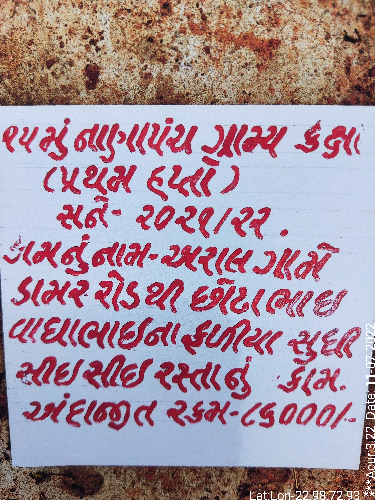 ૧૫મું નાણાપંચ ગ્રામ્ય કક્ષા
(પ્રથમ હપ્તો)
સને- ૨૦૨૧/૨૨.
કામનું નામ-અરાલ ગામે
ડામર રોડથી છોટાભાઇ
વાઘાભાઇના ફળીયા સુધી
સીઇસીઇ રસ્તાનું કામ.
અંદાજીત રકમ-૮૬૦૦૦/-
Lat:Lon-22.98:72.93
***Acur:3.22, Date: 11-07-2022